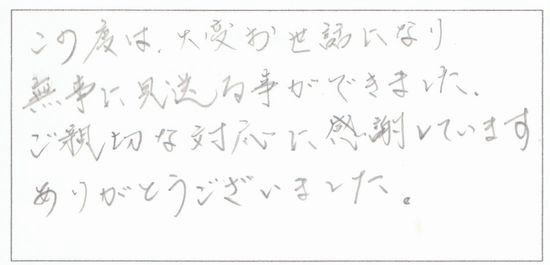 この度は、大変お世話になり
無事に見送る事ができました。
ご親切な対応に感謝しています
ありがとうございました。